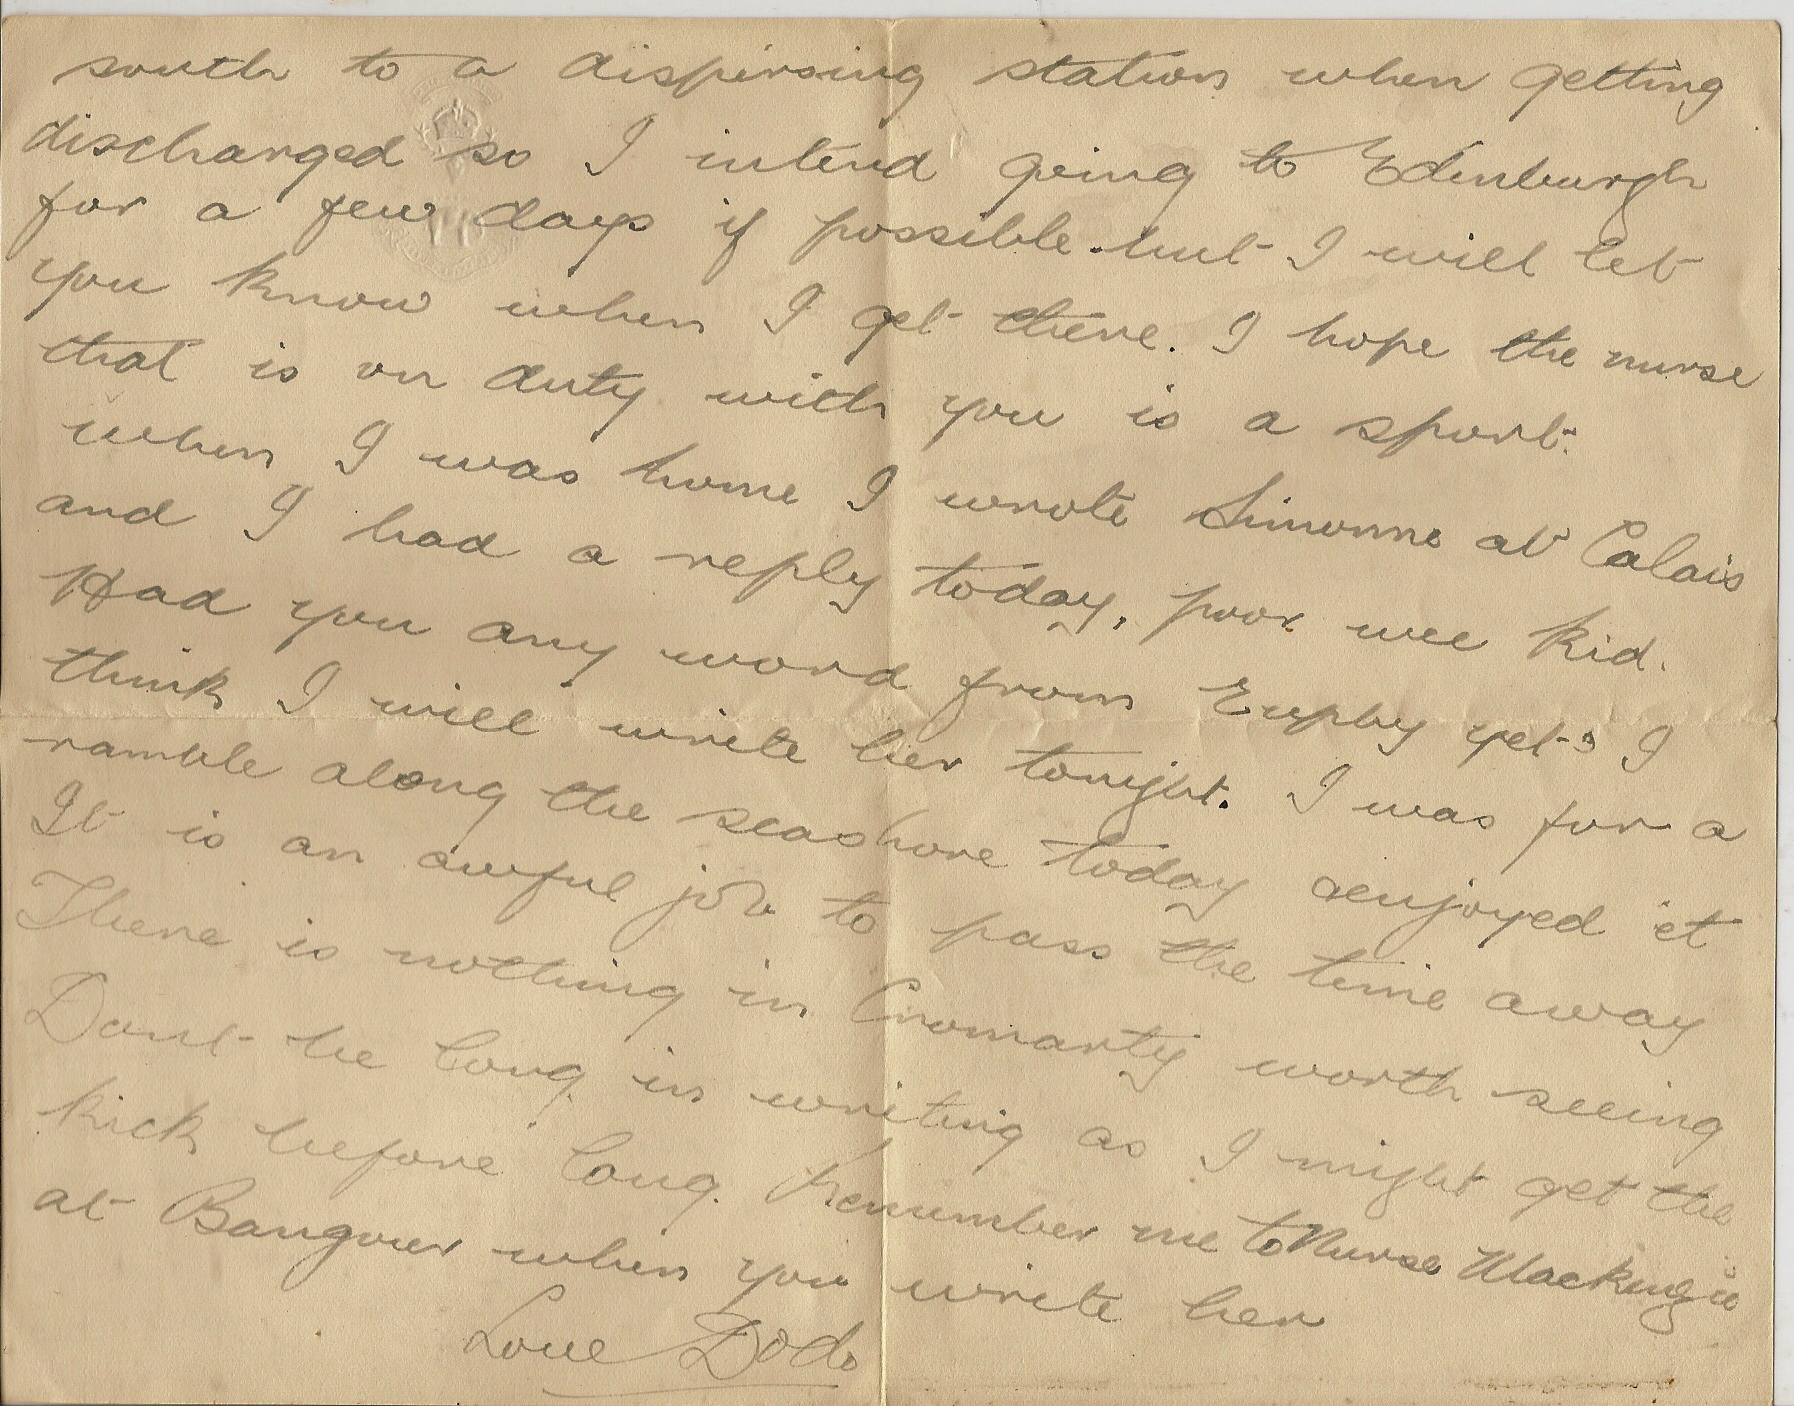 south to a dispersing station when getting
discharged so I intend going to Edinburgh
for a few days if possible but I will let
you know when I get there. I hope the nurse
that is on duty with you is a sport.
when I was home I wrote Simonne at Calais
and I had a reply today, poor wee kid.
Had you any word from Eupby yet? I
think I will write her tonight. I was for a
ramble along the seashore today & enjoyed it
It is an awful job to pass the time away
There is nothing in Cromarty worth seeing
Dont be long in writing as I might get the
kick before long. Remember me to Nurse
at Bangour when you write her
Love Dodo